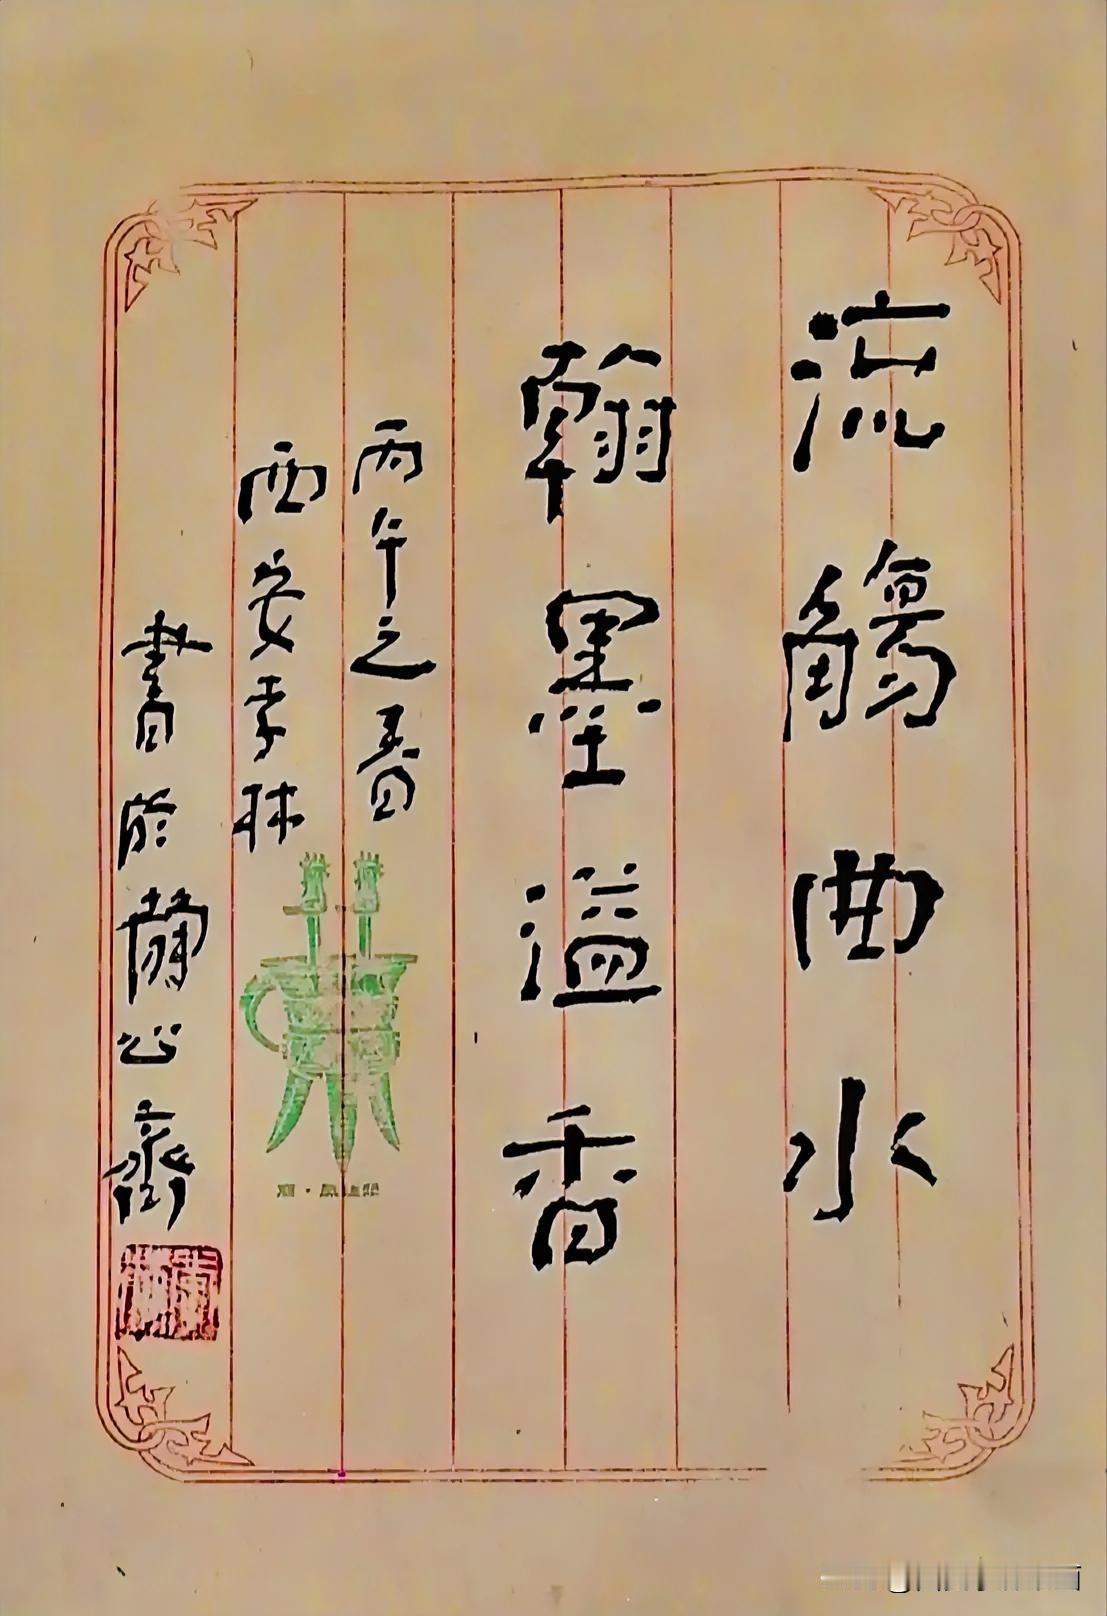 流觴曲水
翰墨溢香
丙午之春
西安李林
書於蘭心齋